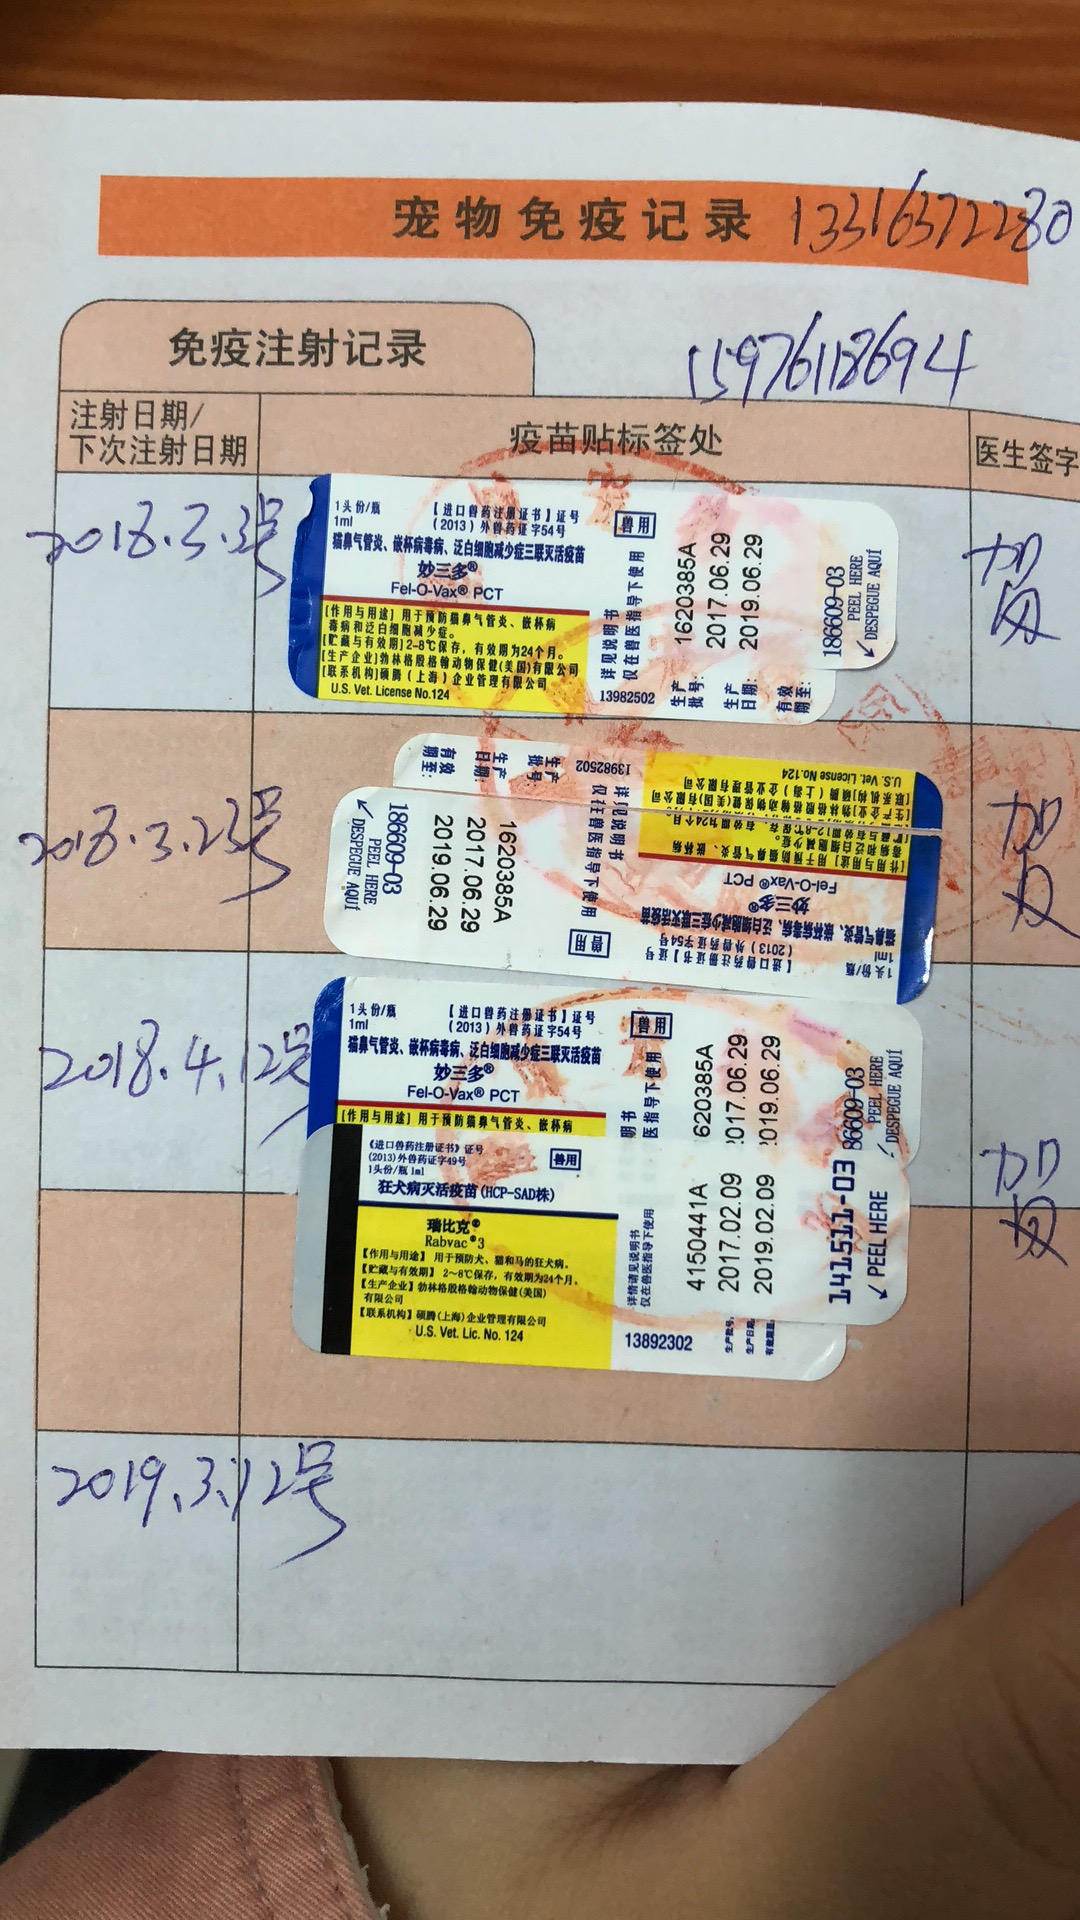 宠物免疫记录 13316372280
免疫注射记录
15976118694
注射日期/
下次注射日期
疫苗贴标签处
医生签字
2018.3.3号
1头份/瓶
1ml
【进口兽药注册证书】证号
(2013)外兽药证字54号
兽用
猫鼻气管炎、嵌杯病毒病、泛白细胞减少症三联灭活疫苗
妙三多®
Fel-O-Vax® PCT
[作用与用途]用于预防猫鼻气管炎、嵌杯病
毒病和泛白细胞减少症。
[贮藏与有效期]2-8℃保存，有效期为24个月。
[生产企业]勃林格殷格翰动物保健(美国)有限公司
[联系机构]硕腾(上海)企业管理有限公司
U.S. Vet. License No.124
详见说明书
仅在兽医指导下使用
13982502
生产批号: 1620385A
生产日期: 2017.06.29
有效期至: 2019.06.29
186609-03
PEEL HERE
DESPEGUE AQUÍ
2018.3.23号
1头份/瓶
1ml
【进口兽药注册证书】证号
(2013)外兽药证字54号
兽用
猫鼻气管炎、嵌杯病毒病、泛白细胞减少症三联灭活疫苗
妙三多®
Fel-O-Vax® PCT
U.S. Vet. License No.124
详见说明书
仅在兽医指导下使用
13982502
生产批号:
生产日期:
有效期至:
1620385A
2017.06.29
2019.06.29
186609-03
PEEL HERE
DESPEGUE AQUÍ
2018.4.12号
1头份/瓶
1ml
【进口兽药注册证书】证号
(2013)外兽药证字54号
兽用
猫鼻气管炎、嵌杯病毒病、泛白细胞减少症三联灭活疫苗
妙三多®
Fel-O-Vax® PCT
[作用与用途]用于预防猫鼻气管炎、嵌杯病
明书
医指导下使用
620385A
017.06.29
019.06.29
86609-03
PEEL HERE
DESPEGUE AQUÍ
《进口兽药注册证书》证号
(2013)外兽药证字49号
1头份/瓶 1ml
兽用
狂犬病灭活疫苗(HCP-SAD株)
瑞比克®
Rabvac®3
【作用与用途】 用于预防犬、猫和马的狂犬病。
【贮藏与有效期】 2~8℃保存，有效期为24个月。
【生产企业】勃林格殷格翰动物保健(美国)
有限公司
【联系机构】硕腾(上海)企业管理有限公司
U.S. Vet. Lic. No. 124
详情请见说明书
仅在兽医指导下使用
13892302
4150441A
2017.02.09
2019.02.09
141511-03
PEEL HERE
2019.3.12号